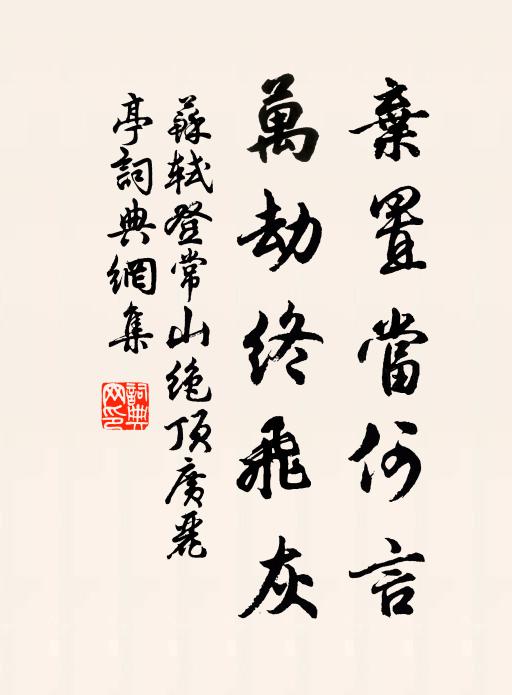 棄置當何言
萬劫終飛灰
蘇軾登常山絶頂廣麗
亭詞典網集
詞典
网印